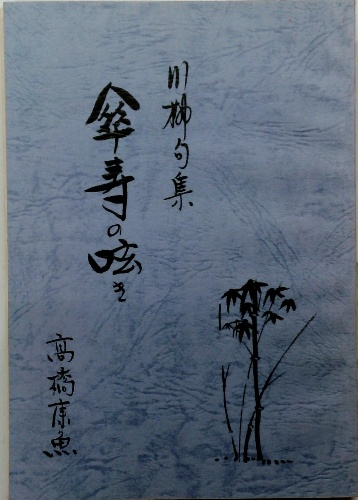 川柳句集
傘寿の呟き
高橋康魚